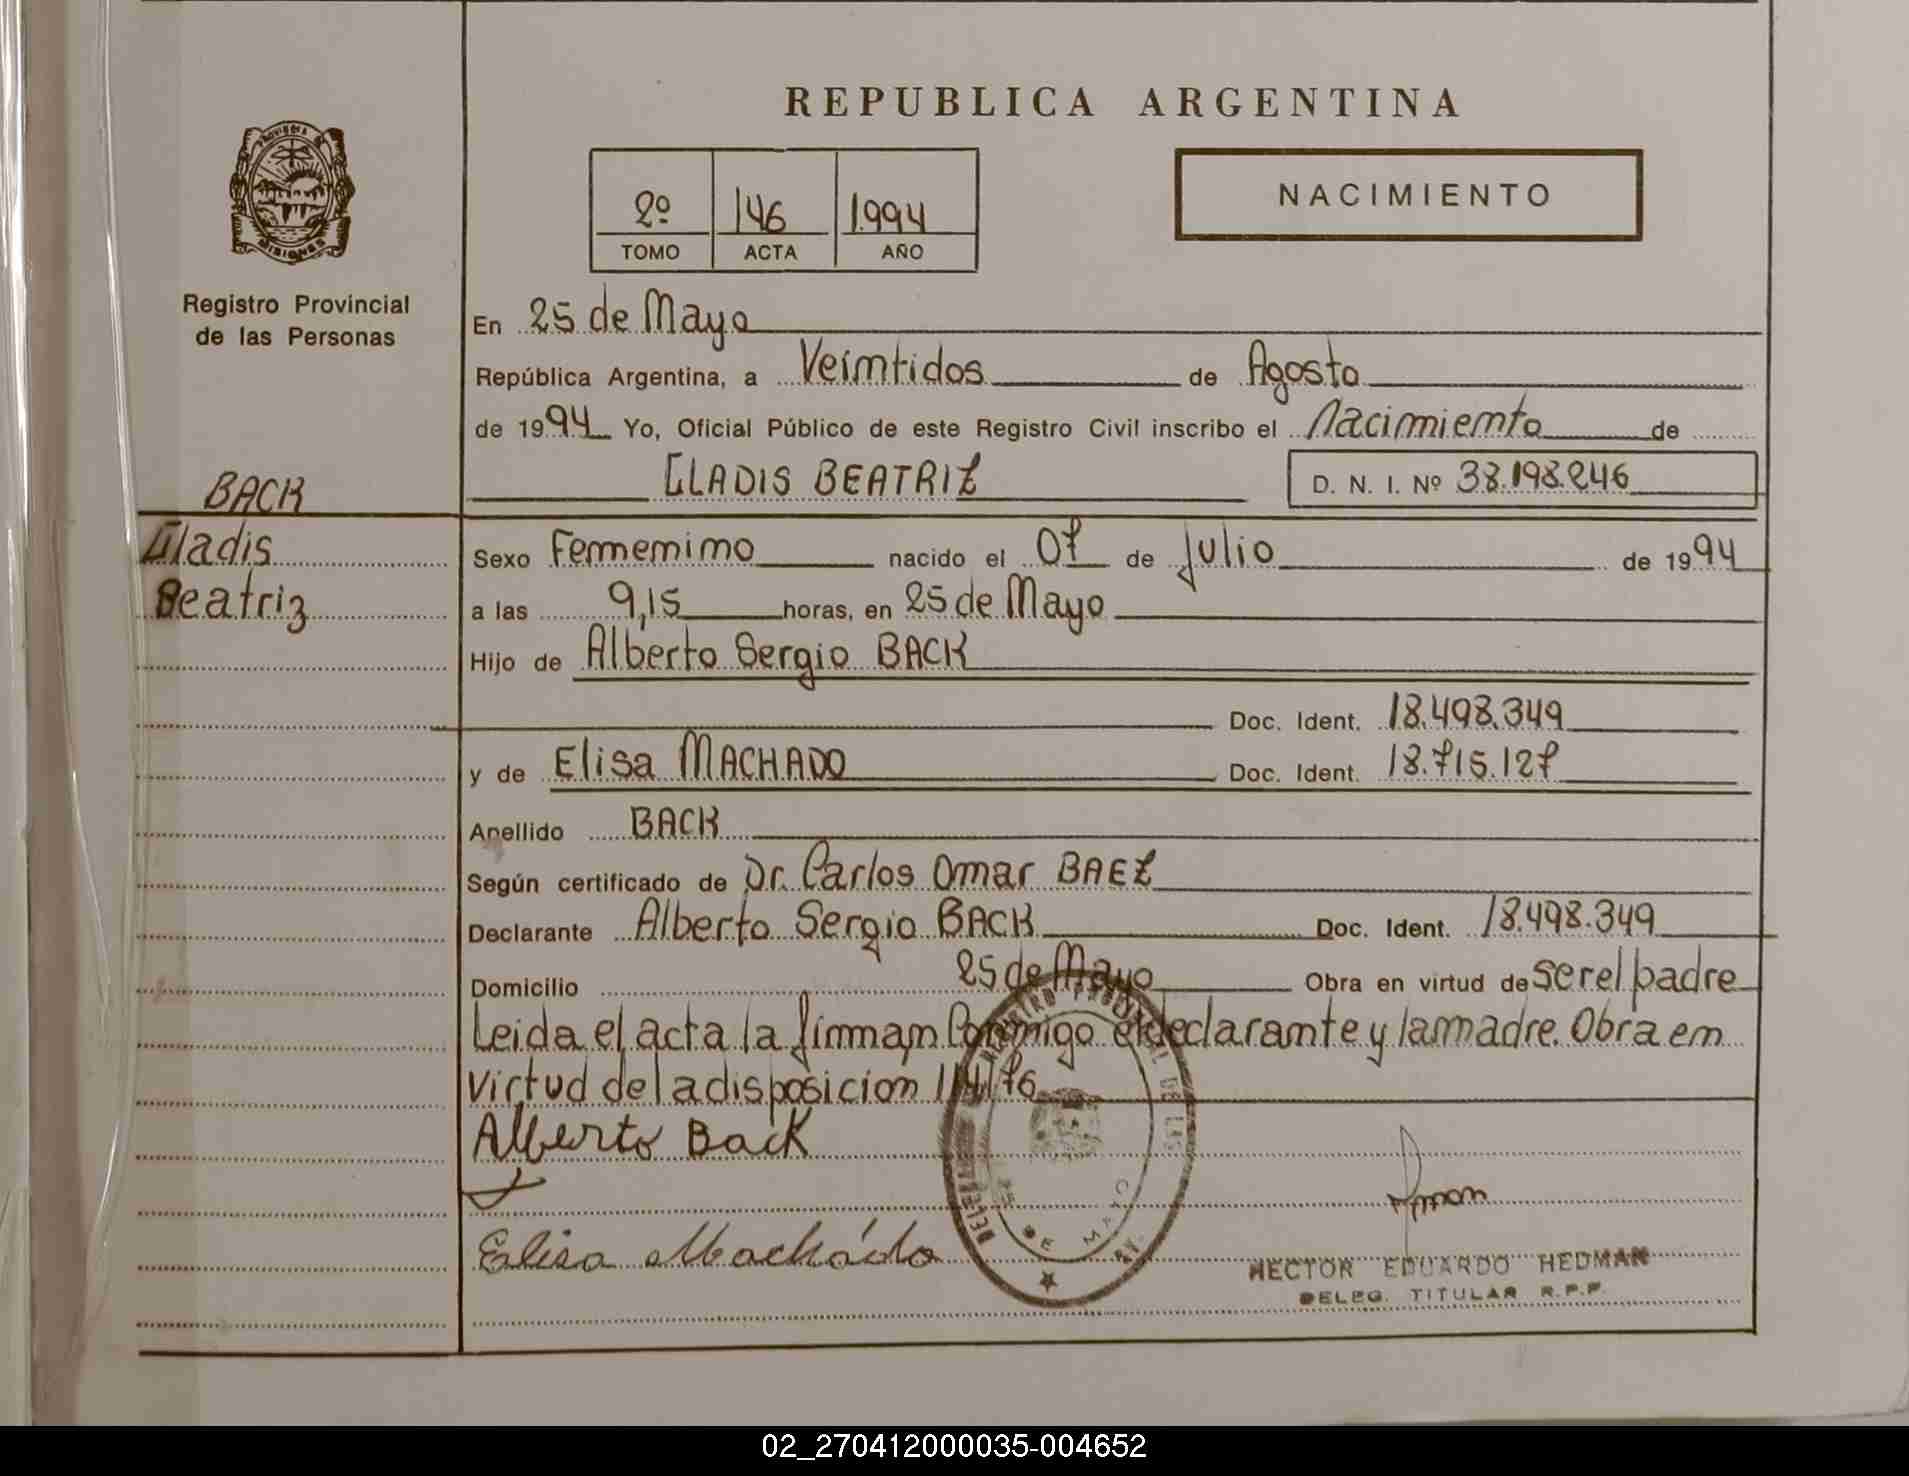 REPUBLICA ARGENTINA
PROVINCIA DE
MISIONES
Registro Provincial
de las Personas
2º 146 1994
TOMO ACTA AÑO
NACIMIENTO
En 25 de Mayo
República Argentina, a Veintidos de Agosto
de 1994 Yo, Oficial Público de este Registro Civil inscribo el Nacimiento de
GLADIS BEATRIZ D. N. I. Nº 38.198.246
BACK
Gladis
Beatriz
Sexo Femenino nacido el 07 de Julio de 1994
a las 9,15 horas, en 25 de Mayo
Hijo de Alberto Sergio BACK
Doc. Ident. 18.498.349
y de Elisa MACHADO Doc. Ident. 18.715.127
Apellido BACK
Según certificado de Dr. Carlos Omar BAEZ
Declarante Alberto Sergio BACK Doc. Ident. 18.498.349
Domicilio 25 de Mayo Obra en virtud de ser el padre
Leida el acta la firman Conmigo el declarante y la madre. Obra en
virtud de la disposicion /76
Alberto Back
Elisa Machádo
REGISTRO PROVINCIAL DE LAS
25 DE MAYO
HECTOR EDUARDO HEDMAN
DELEG. TITULAR R.P.P.
02_270412000035-004652